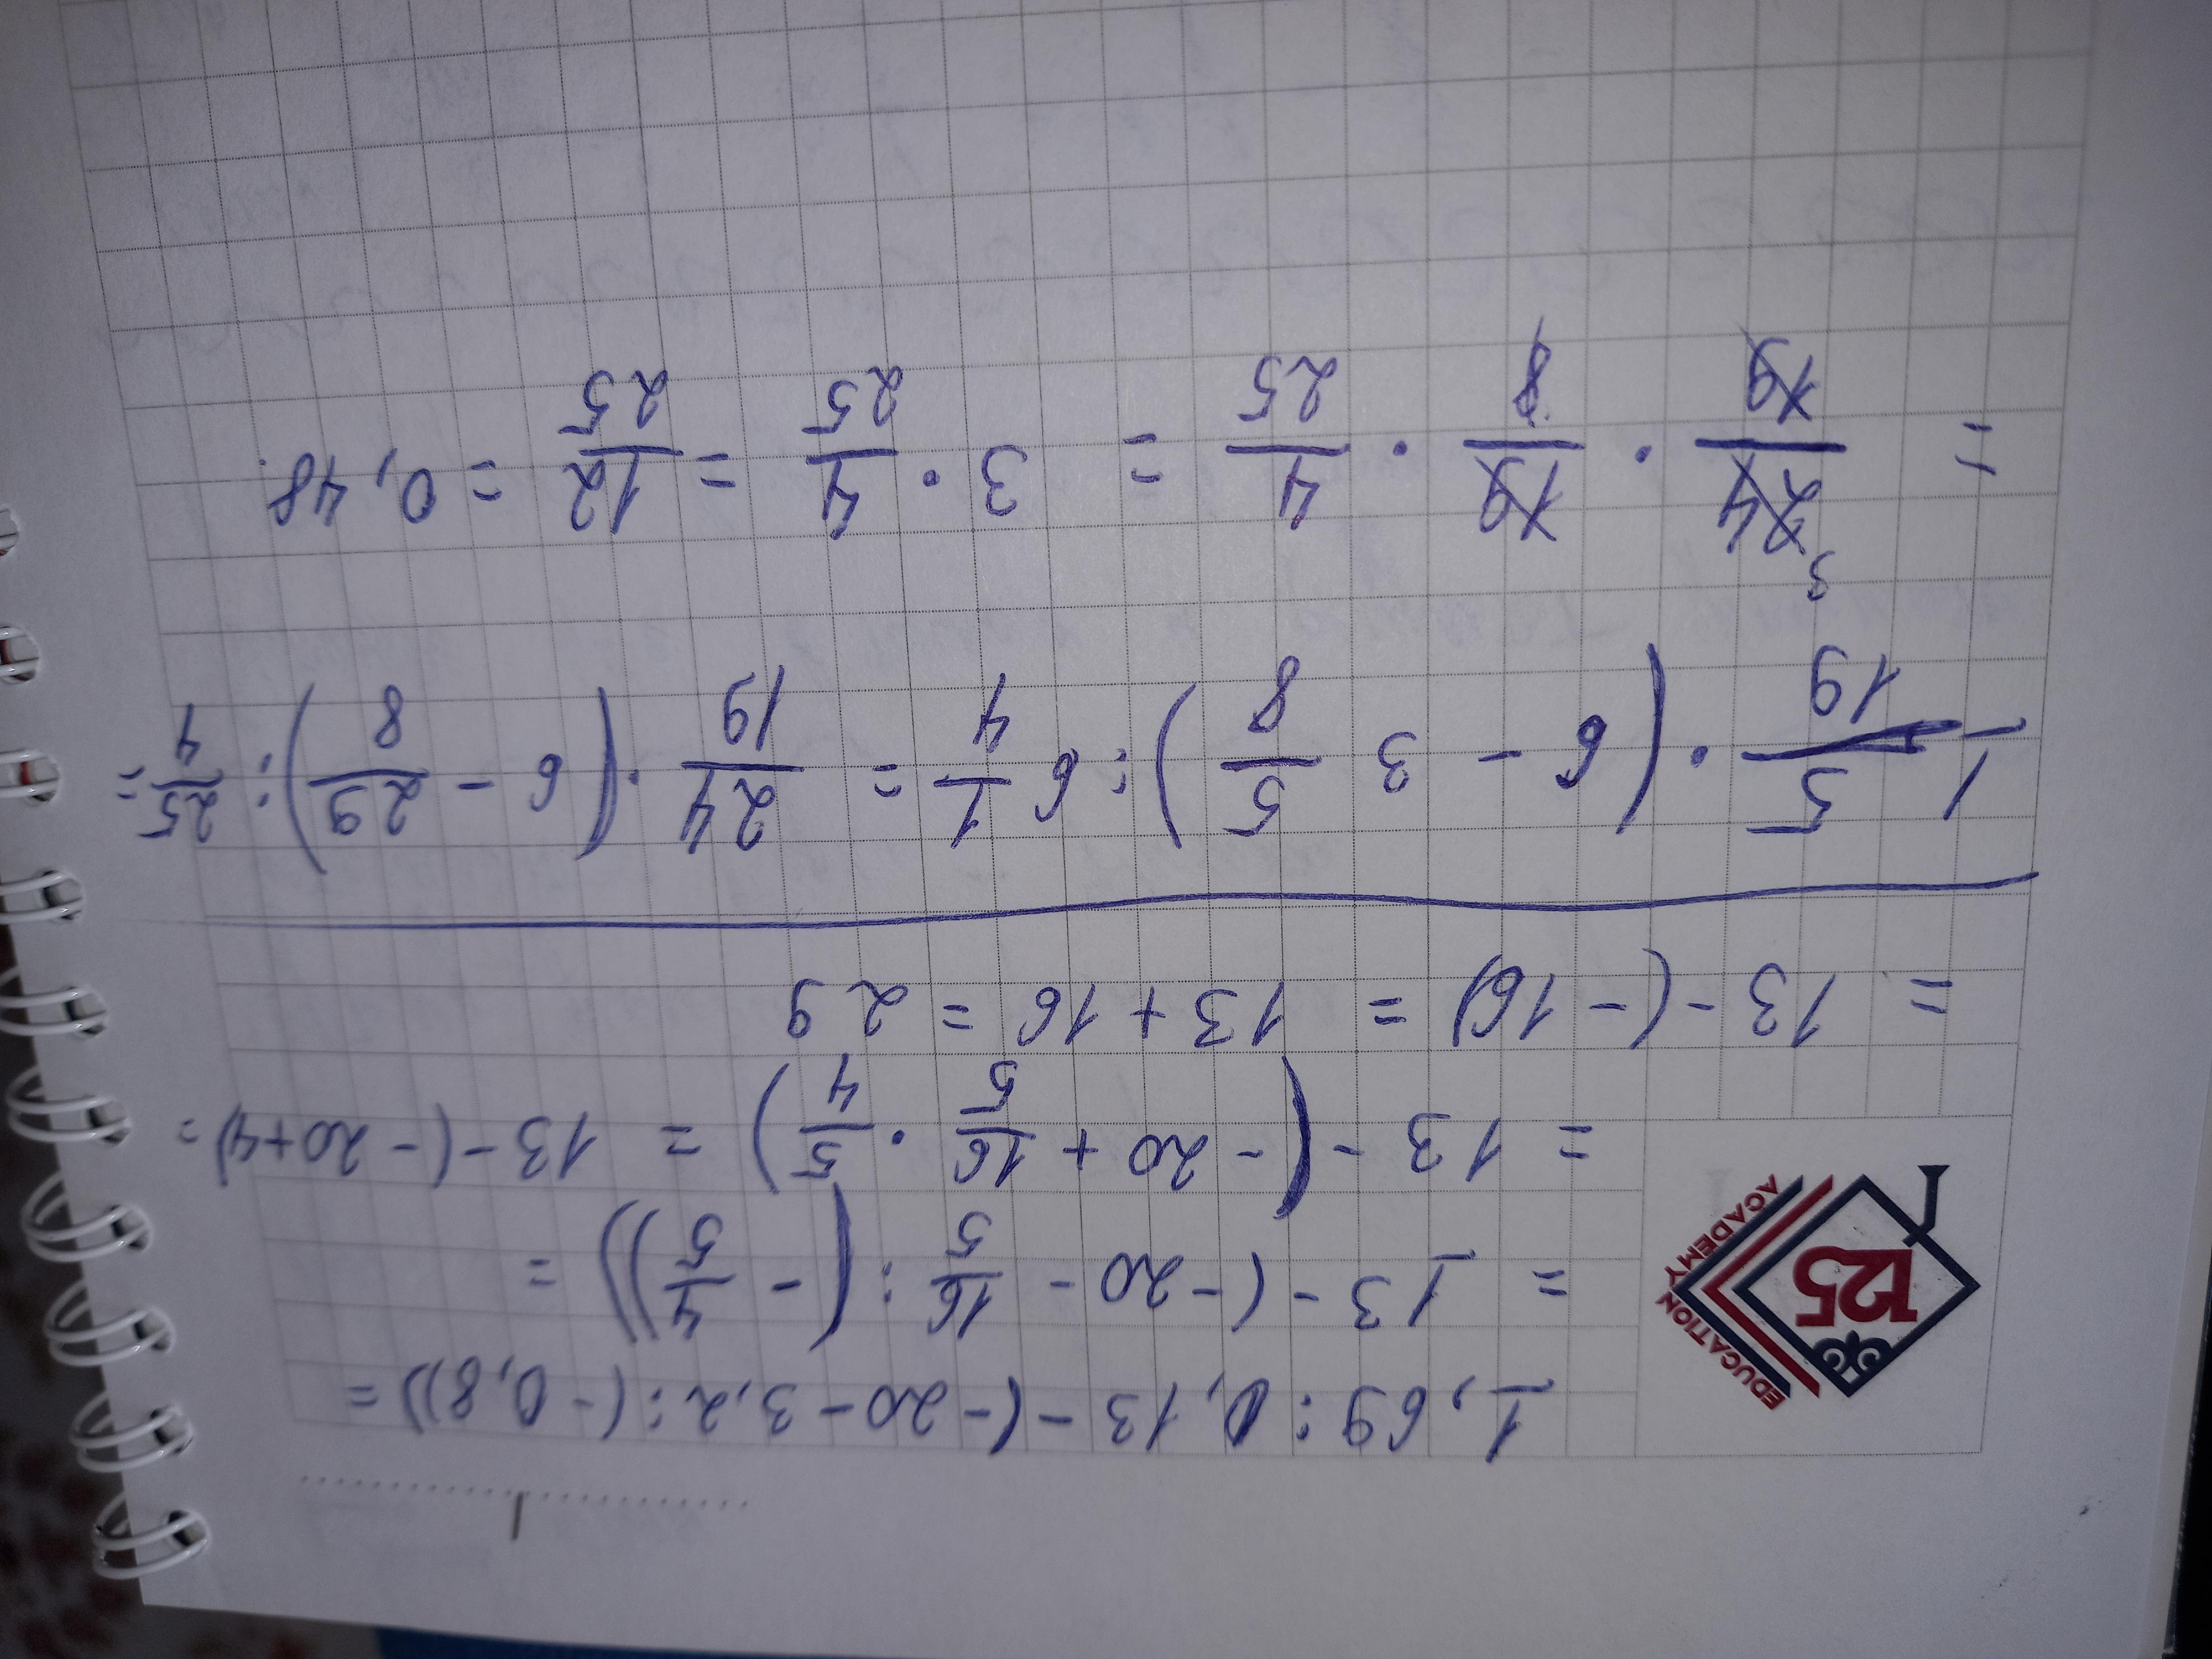 1
125
EDUCATION
ACADEMY
1,69 : 0,13 - (-20 - 3,2 : (-0,8)) =
= 13 - (-20 - 16/5 : (-4/5)) =
= 13 - (-20 + 16/5 · 5/4) = 13 - (-20+4) =
= 13 - (-16) = 13 + 16 = 29
1 5/19 · (6 - 3 5/8) : 6 1/4 = 24/19 · (6 - 29/8) : 25/4 =
3
= 24/19 · 19/8 · 4/25 = 3 · 4/25 = 12/25 = 0,48.